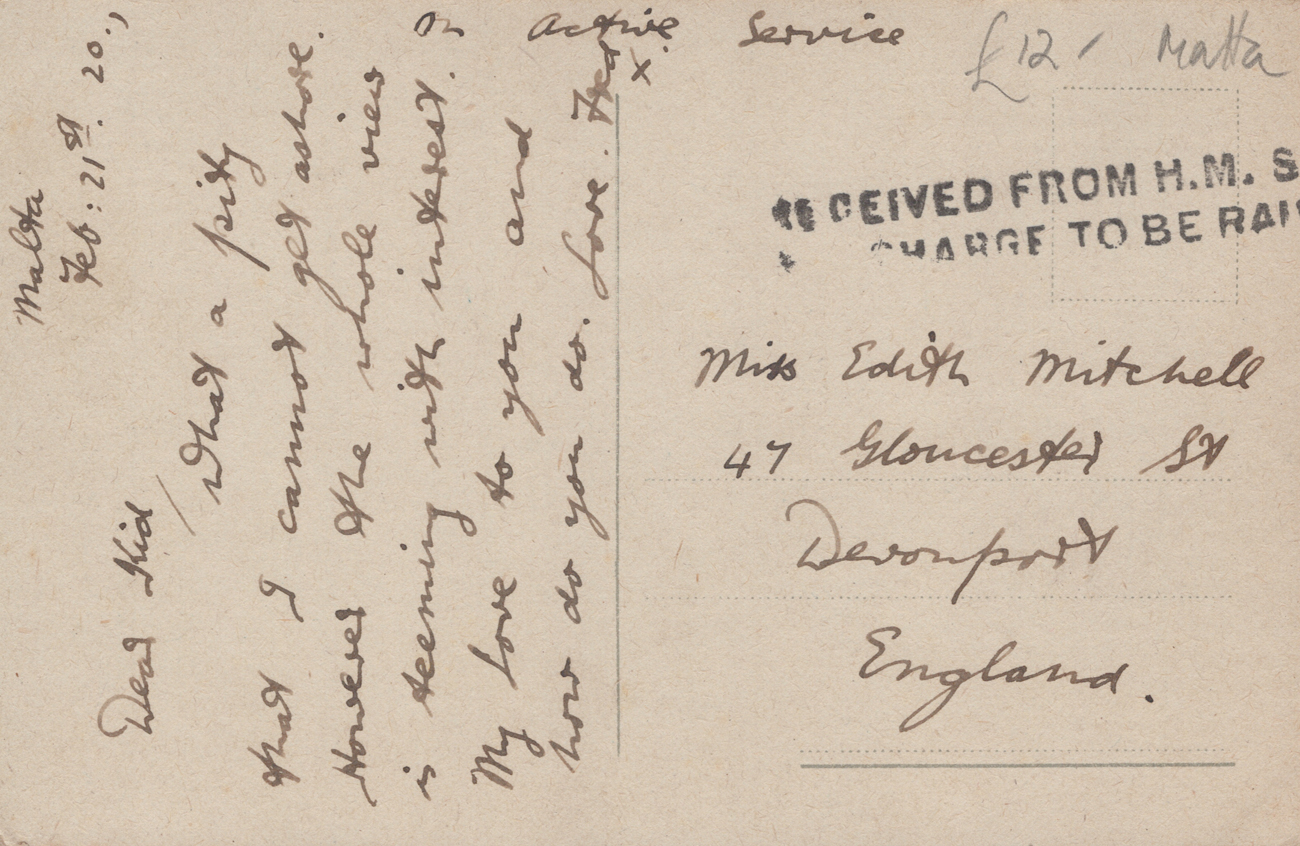 On Active Service
£12/ Malta
RECEIVED FROM H.M. S
CHARGE TO BE RAI
Malta
Feb: 21st. 20.,
Dear Kid
What a pity
that I cannot get ashore.
However the whole view
is teeming with interest.
My love to you and
how do you do. Love. Fred
x.
Miss Edith Mitchell
47 Gloucester St
Devonport
England.